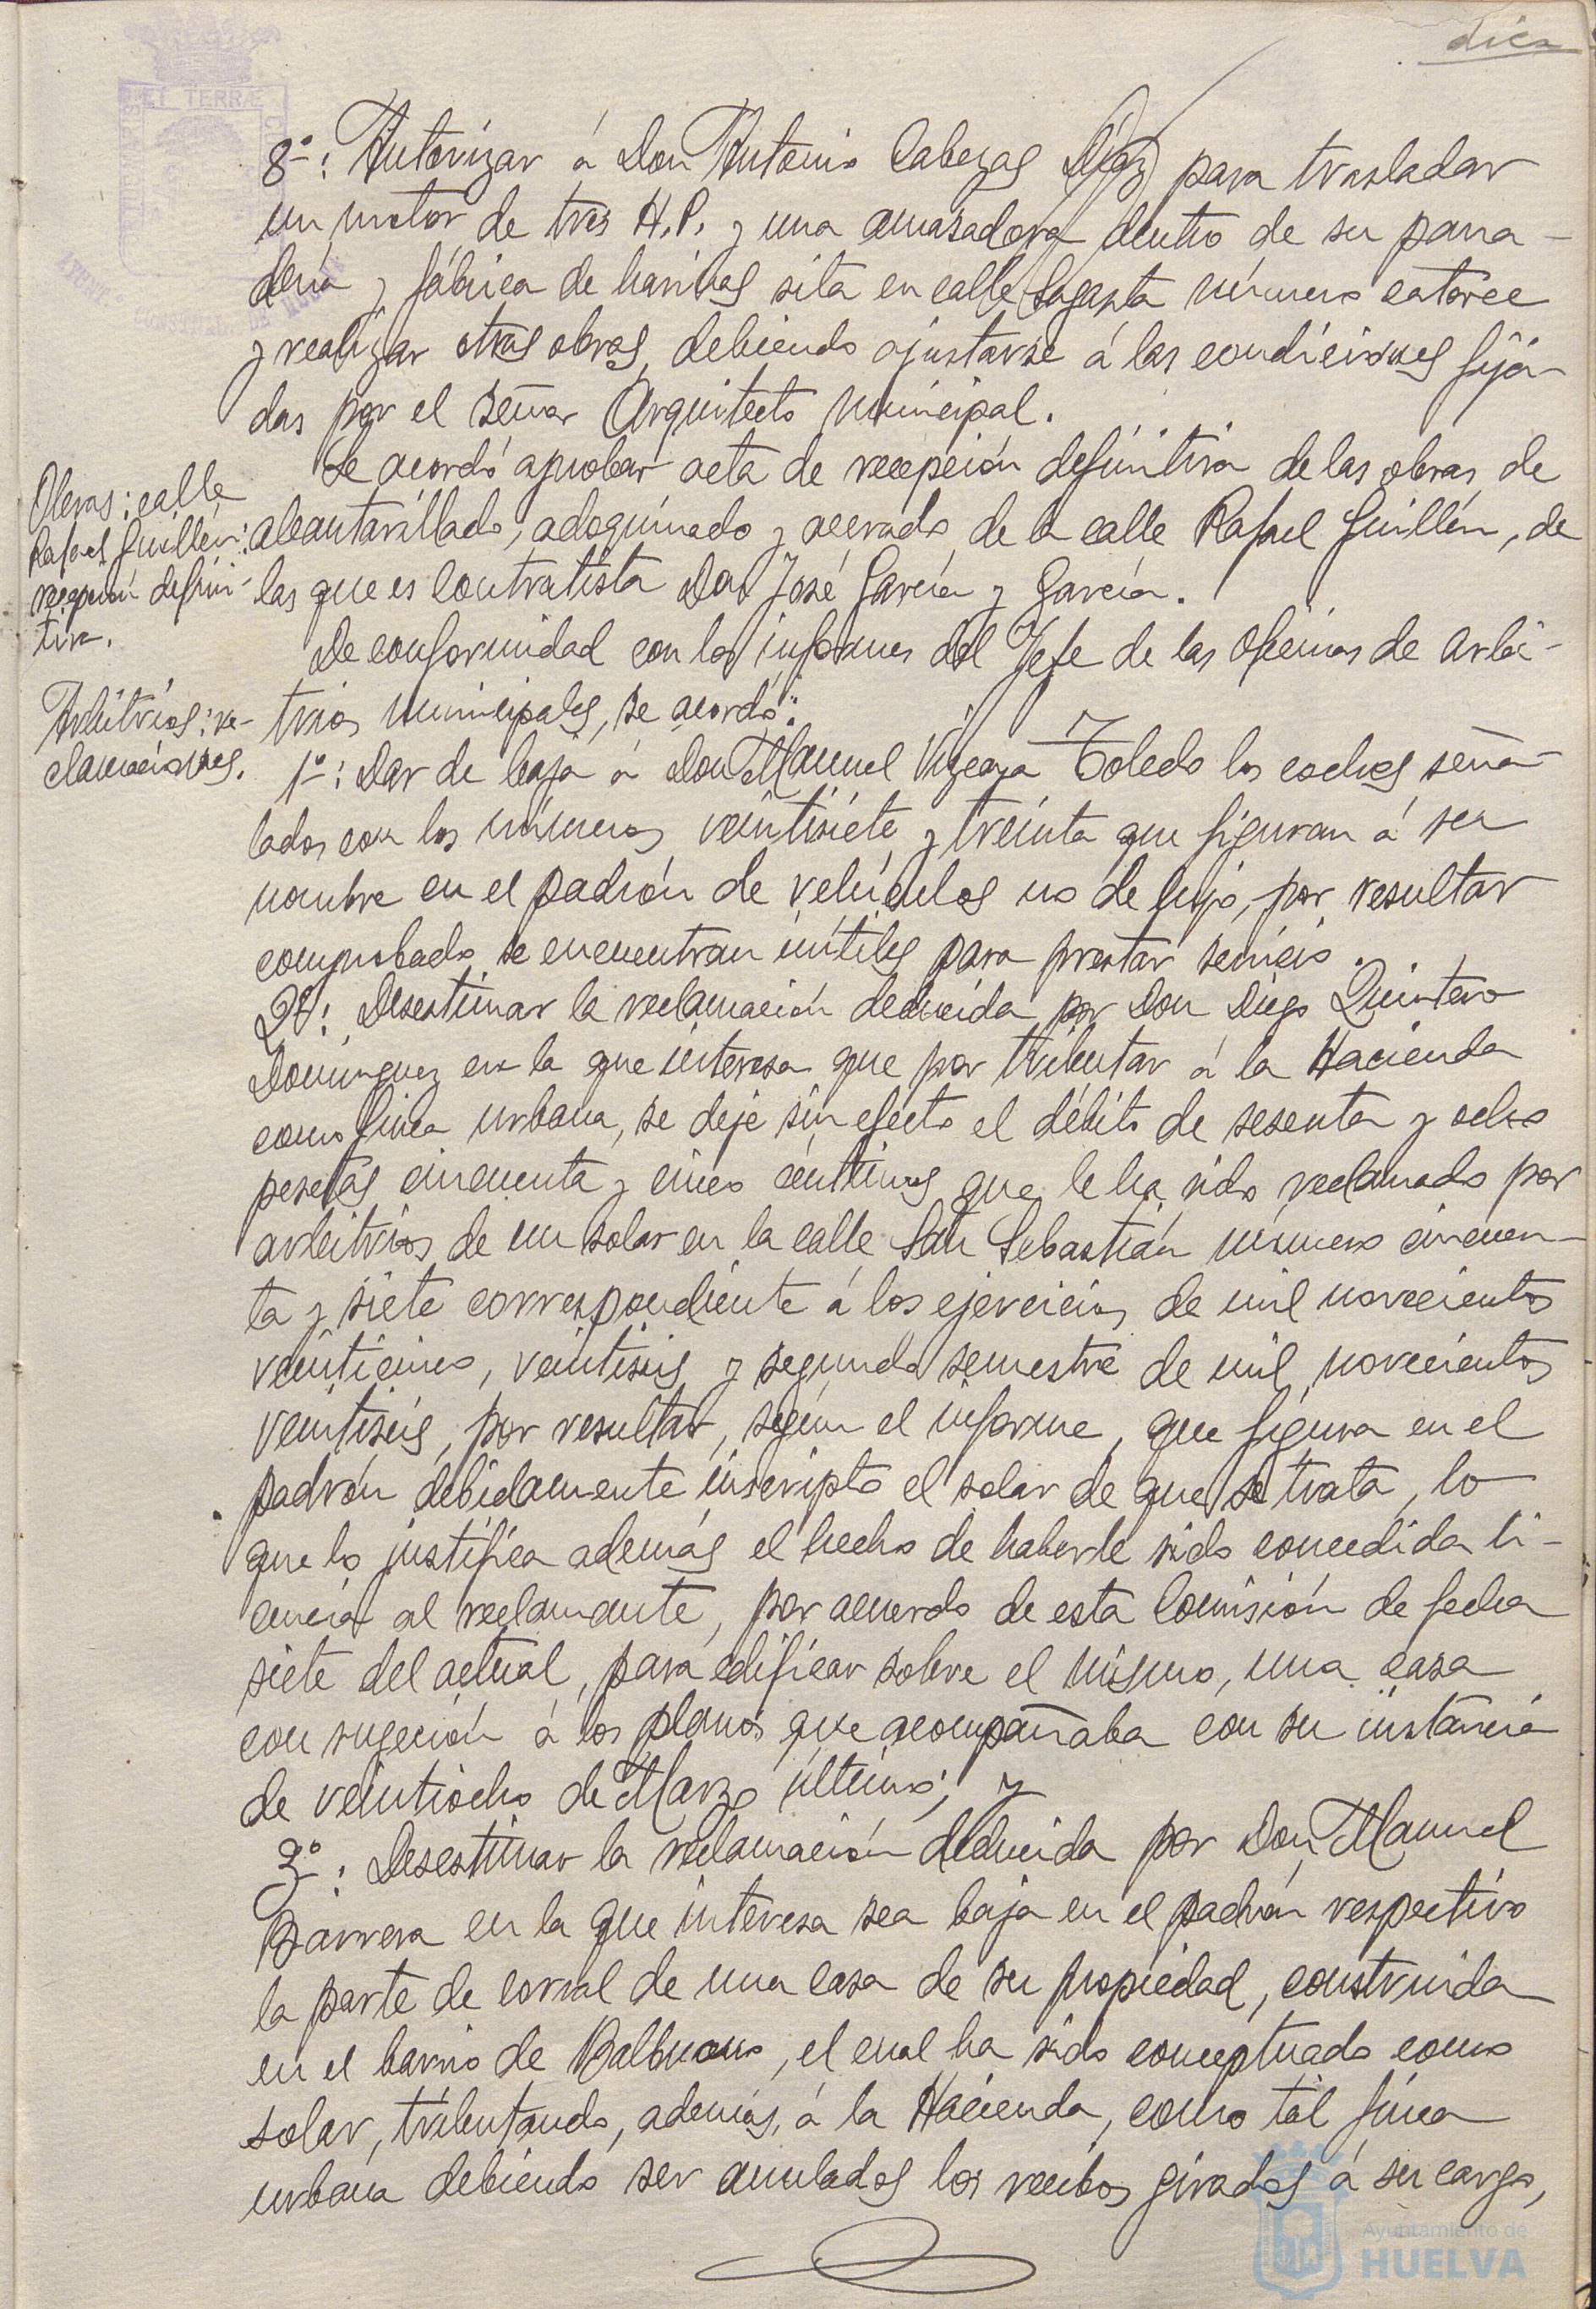 diez
8º: Autorizar á Don Antonio Cabezas Díaz para trasladar
un motor de tres H.P. y una amasadora dentro de su pana-
dería y fábrica de harinas sita en calle Sagasta número catorce
y realizar otras obras, debiendo ajustarse á las condiciones fija-
das por el señor Arquitecto Municipal.
Obras: calle
Rafael Guillén:
recepción defini-
tiva.
Se acordó aprobar acta de recepción definitiva de las obras de
alcantarillado, adoquinado y acerado de la calle Rafael Guillén, de
las que es contratista Don José García y García.
Arbitrios: re-
clamaciones.
De conformidad con los informes del Jefe de las Oficinas de Arbi-
trios Municipales, se acordó:
1º: Dar de baja á Don Manuel Vizcaya Toledo los coches seña-
lados con los números veintisiete y treinta que figuran á su
nombre en el padrón de vehículos no de lujo, por resultar
comprobado se encuentran inútiles para prestar servicio.
2º: Desestimar la reclamación deducida por Don Diego Quintero
Domínguez en la que interesa que por tributar á la Hacienda
como finca urbana, se deje sin efecto el débito de sesenta y ocho
pesetas cincuenta y cinco céntimos que le ha sido reclamado por
arbitrios de un solar en la calle San Sebastián número cincuen-
ta y siete correspondiente á los ejercicios de mil novecientos
veinticinco, veintiseis y segundo semestre de mil novecientos
veintiseis, por resultar, según el informe, que figura en el
padrón debidamente inscripto el solar de que se trata, lo
que lo justifica además el hecho de haberle sido concedida li-
cencia al reclamante, por acuerdo de esta Comisión de fecha
siete del actual, para edificar sobre el mismo, una casa
con sugeción á los planos que acompañaba con su instancia
de veintiocho de Marzo último; y
3º: Desestimar la reclamación deducida por Don Manuel
Barrera en la que interesa sea baja en el padrón respectivo
la parte de corral de una casa de su propiedad, construida
en el barrio de Balbueno, el cual ha sido conceptuado como
solar, tributando, además, á la Hacienda, como tal finca
urbana debiendo ser anulados los recibos girados á su cargo,
Ayuntamiento de
HUELVA